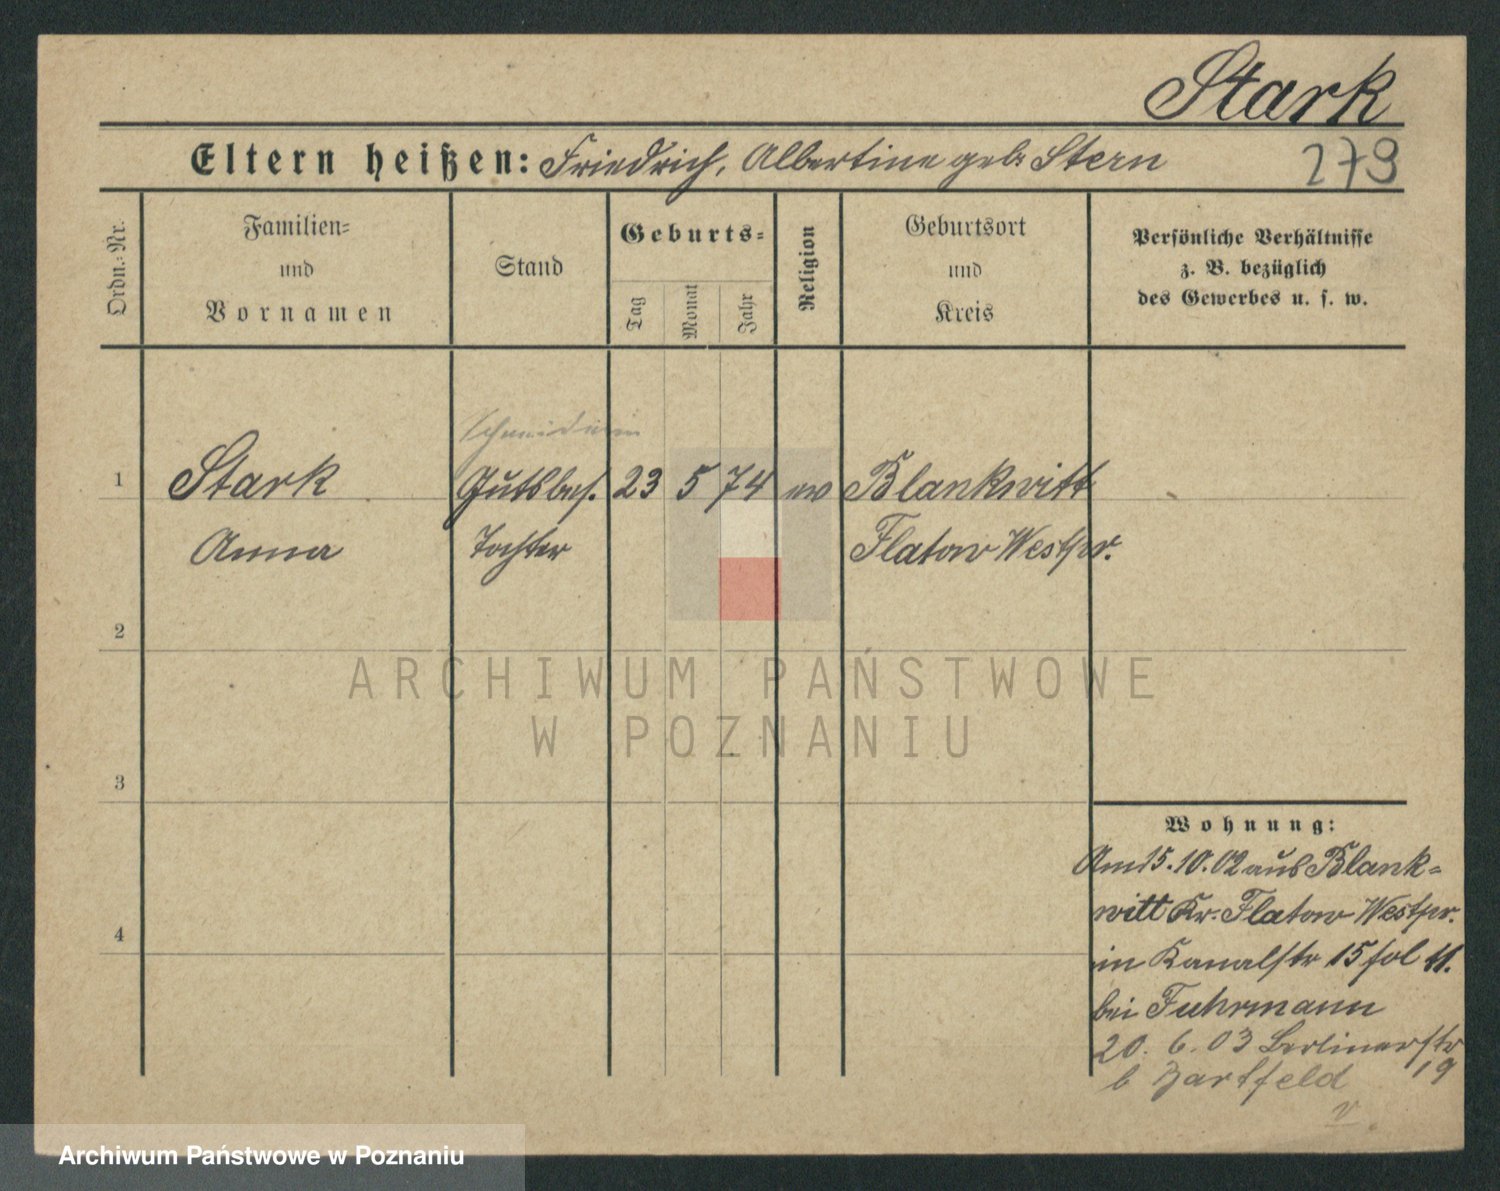 Stark
Eltern heißen: Friedrich, Albertine geb. Stern
279
Ordn.-Nr.
Familien-
und
Vornamen
Stand
Geburts-
Tag
Monat
Jahr
Religion
Geburtsort
und
Kreis
Persönliche Verhältnisse
z. B. bezüglich
des Gewerbes u. s. w.
Schneiderin
1 Stark Gutsbes. 23 5 74 ev Blankwitt
Anna Tochter Flatow Westpr.
2
3
4
Wohnung:
Am 15.10.02 aus Blank-
witt Kr. Flatow Westpr.
in Kanalstr 15 fol 11.
bei Fuhrmann
20. 6. 03 Berlinerstr
19
b Hartfeld
v
ARCHIWUM PAŃSTWOWE
W POZNANIU
Archiwum Państwowe w Poznaniu